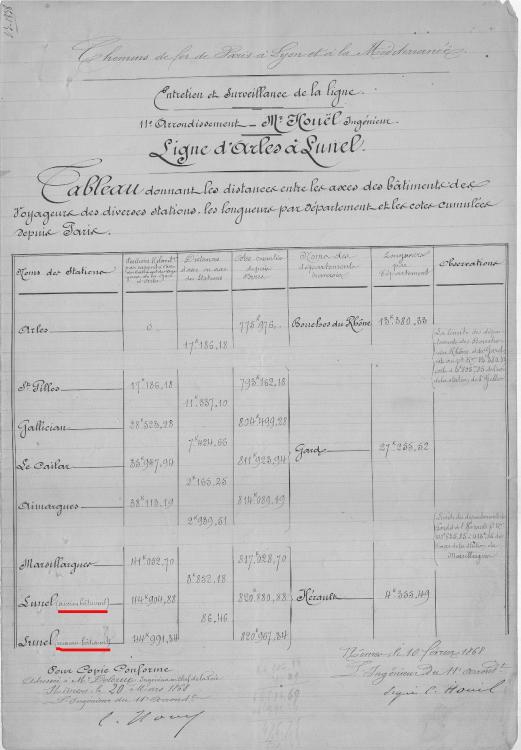 Chemins de fer de Paris à Lyon et à la Méditerranée
Entretien et Surveillance de la ligne.
11e Arrondissement – Mr Houël Ingénieur.
Ligne d'Arles à Lunel.
Tableau donnant les distances entre les axes des bâtiments des
Voyageurs des diverses stations, les longueurs par département et les cotes cumulées
depuis Paris.
Noms des Stations
Distances d'axe en axe des Stations
Cotes cumulées depuis Paris
Noms des départements traversés
Longueurs par Département
Observations
Arles 0 775k976 Bouches du Rhône 13k380,33
17k186,18
St Gilles 17k186,18 793k162,18
11k337,10
Gallician 28k523,28 804k499,28
7k424,66
Le Cailar 35k947,94 811k923,94 Gard 27k255,52
2k165,25
Aimargues 38k113,19 814k089,19
2k939,51
Marsillargues 41k052,70 817k028,70
3k852,18
Lunel (ancien bâtiment) 44k904,88 820k880,88 Hérault 4k355,49
86,46
Lunel (nouveau bâtiment) 44k991,34 820k967,34
Nîmes le 10 février 1868
L'Ingénieur du 11e arrondt
Signé C. Houël
Pour Copie Conforme
Nîmes le 20 Mars 1868
L'Ingénieur du 11e arrondt
C. Houël